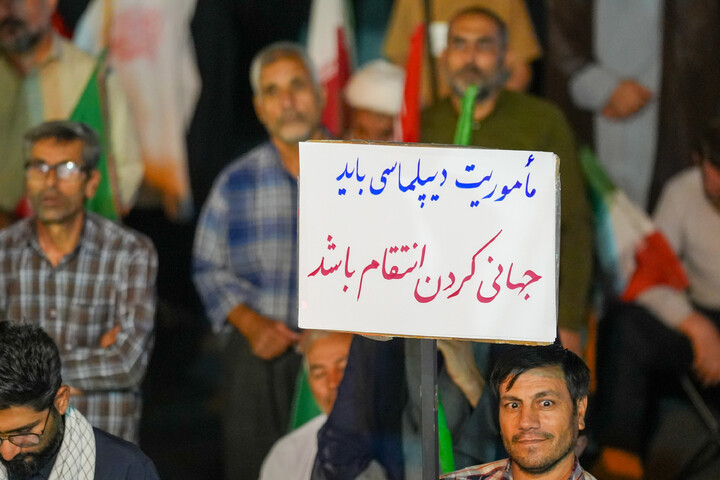 مأموریت دیپلماسی باید
جهانی کردن انتقام باشد